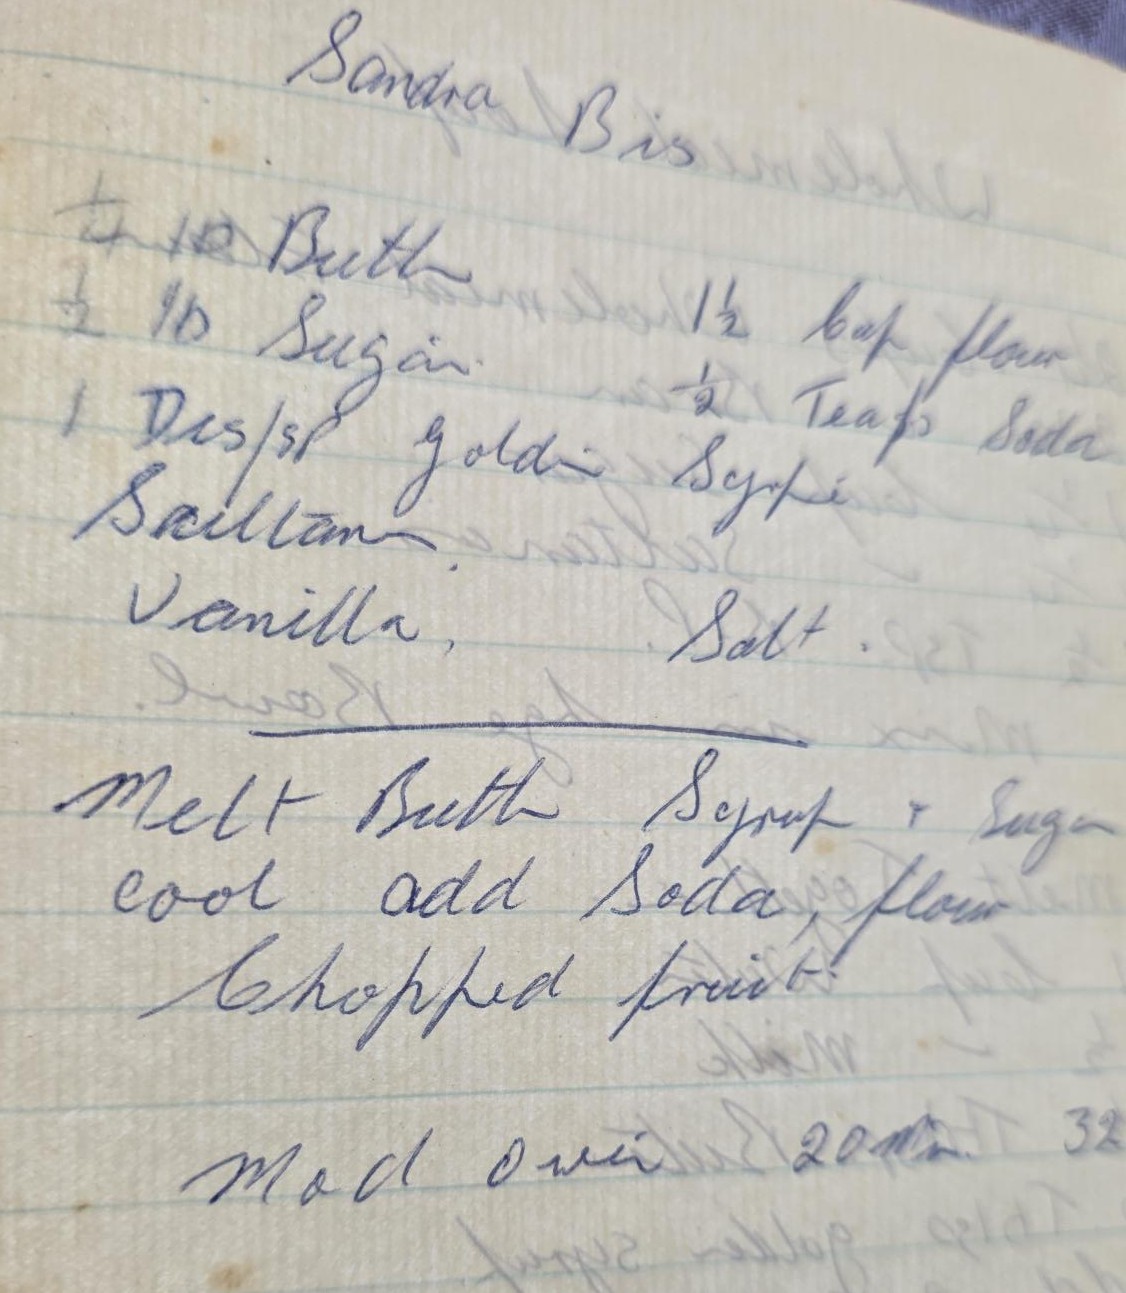 Sandra Bis
1/4 lb Butter
1/2 lb Sugar. 1 1/2 Cup flour
1 Des/sp golden Syrpe 1/2 Teasp Soda
Saultanas.
Vanilla, Salt.
Melt Butter Syrup + Sugar
cool add Soda, flour
Chopped fruit.
Mod oven 20 min. 32